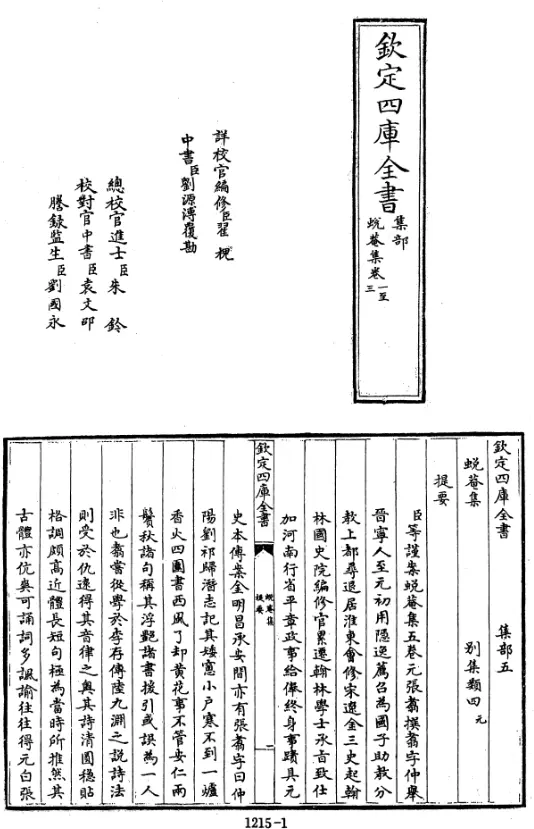 欽定四庫全書
集部
蛻菴集卷一至三
詳校官編修臣翟槐
中書臣劉源溥覆勘
總校官進士臣朱鈐
校對官中書臣袁文邵
謄錄監生臣劉國永
欽定四庫全書 集部五
蛻菴集 別集類四 元
提要
臣等謹案蛻菴集五卷元張翥撰翥字仲舉
晉寧人至元初用隱逸薦召為國子助教分
教上都尋退居淮東會修宋遼金三史起翰
林國史院編修官累遷翰林學士承旨致仕
加河南行省平章政事給俸終身事蹟具元
欽定四庫全書
蛻菴集
提要
一
史本傳案金明昌承安間亦有張翥字曰仲
陽劉祁歸潛志記其矮窻小戶寒不到一爐
香火四圍書西風了却黄花事不管安仁兩
鬢秋諸句稱其浮艶諸書援引或誤為一人
非也翥嘗從學於李存傳陸九淵之說詩法
則受於仇遠得其音律之奥其詩清圓穩貼
格調頗高近體長短句極為當時所推然其
古體亦伉爽可誦詞多諷諭往往得元白張
1215-1